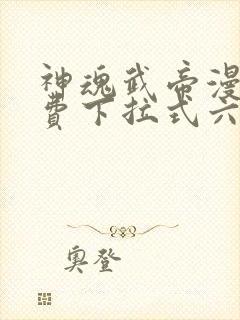 神魂武帝漫
费下拉式六
奥登